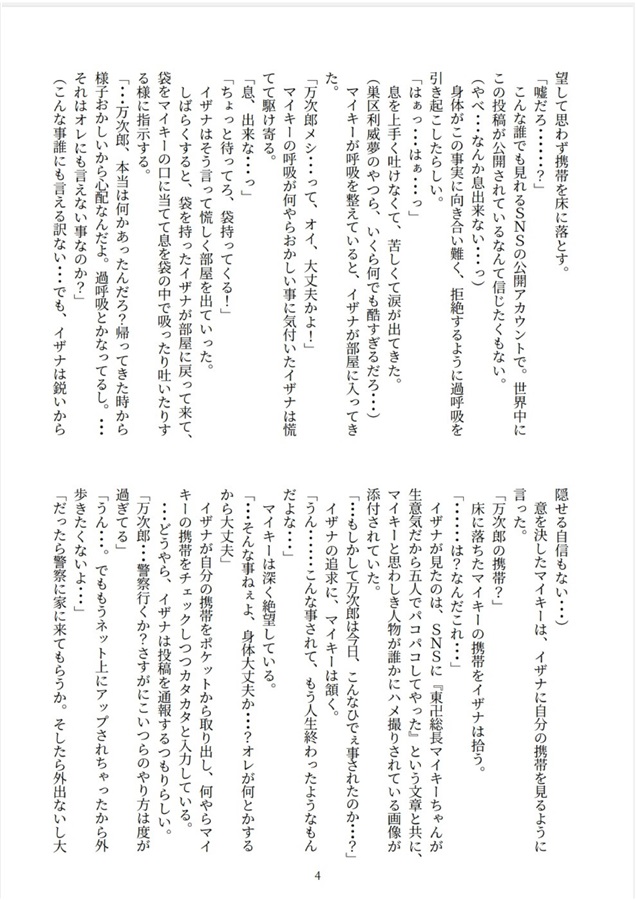 望して思わず携帯を床に落とす。
「嘘だろ……？」
こんな誰でも見れるSNSの公開アカウントで。世界中に
この投稿が公開されているなんて信じたくもない。
(やべ・・・なんか息出来ない・・・っ)
身体がこの事実に向き合い難く、拒絶するように過呼吸を
引き起こしたらしい。
「はぁっ・・・はぁ・・・っ」
息を上手く吐けなくて、苦しくて涙が出てきた。
(巣区利威夢のやつら、いくら何でも酷すぎるだろ・・・)
マイキーが呼吸を整えていると、イザナが部屋に入ってき
た。
「万次郎メシ・・・って、オイ、大丈夫かよ！」
マイキーの呼吸が何やらおかしい事に気付いたイザナは慌
てて駆け寄る。
「息、出来な・・・っ」
「ちょっと待ってろ、袋持ってくる！」
イザナはそう言って慌しく部屋を出ていった。
しばらくすると、袋を持ったイザナが部屋に戻って来て、
袋をマイキーの口に当てて息を袋の中で吸ったり吐いたりす
る様に指示する。
「・・・万次郎、本当は何かあったんだろ？帰ってきた時から
様子おかしいから心配なんだよ。過呼吸とかなってるし。・・・
それはオレにも言えない事なのか？」
(こんな事誰にも言える訳ない・・・でも、イザナは鋭いから
隠せる自信もない・・・)
意を決したマイキーは、イザナに自分の携帯を見るように
言った。
「万次郎の携帯？」
床に落ちたマイキーの携帯をイザナは拾う。
「・・・・・は？なんだこれ・・・」
イザナが見たのは、SNSに『東卍総長マイキーちゃんが
生意気だから五人でパコパコしてやった』という文章と共に、
マイキーと思わしき人物が誰かにハメ撮りされている画像が
添付されていた。
「・・・もしかして万次郎は今日、こんなひでぇ事されたのか・・・？」
イザナの追求に、マイキーは頷く。
「うん・・・・・・こんな事されて、もう人生終わったようなもん
だよな・・・」
マイキーは深く絶望している。
「・・・そんな事ねぇよ、身体大丈夫か・・・？オレが何とかする
から大丈夫」
イザナが自分の携帯をポケットから取り出し、何やらマイ
キーの携帯をチェックしつつカタカタと入力している。
・・・どうやら、イザナは投稿を通報するつもりらしい。
「万次郎・・・警察行くか？さすがにこいつらのやり方は度が
過ぎてる」
「うん・・・。でももうネット上にアップされちゃったから外
歩きたくないよ・・・」
「だったら警察に家に来てもらうか。そしたら外出ないし大
4